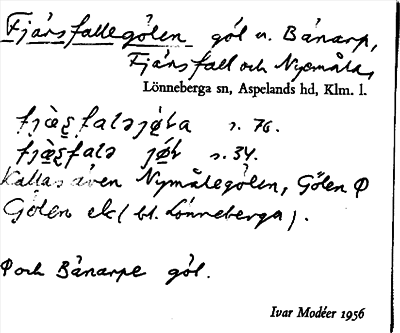 Fjärsfallegölen göl u. Bånarp,
Fjärsfall och Nymåla,
Lönneberga sn, Aspelands hd, Klm. l.
s. 76.
s. 34.
Kallas även Nymålegölen, Gölen Φ
Gölen ek( bl. Lönneberga).
Φ och Bånarpe göl.
Ivar Modéer 1956